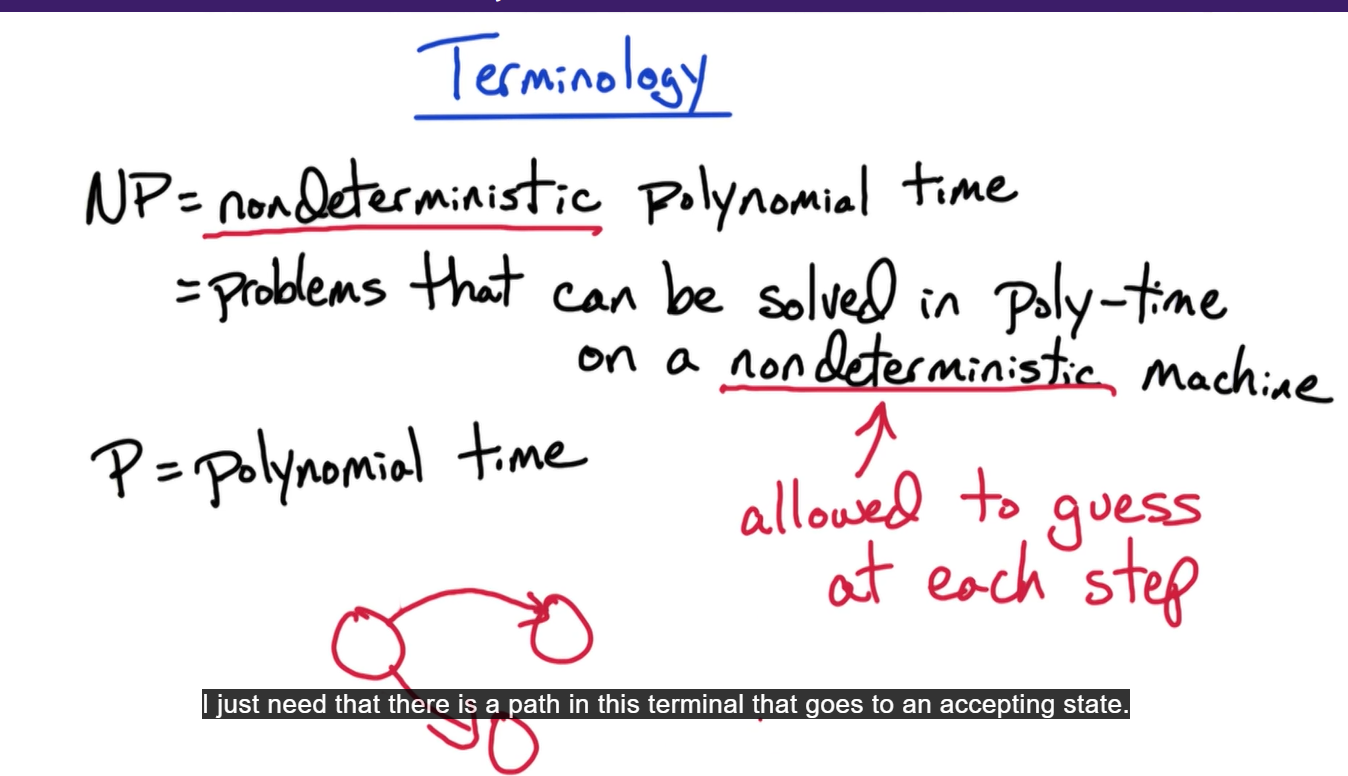 Terminology
NP = nondeterministic polynomial time
= problems that can be solved in poly-time
on a nondeterministic machine
P = polynomial time
allowed to guess
at each step
I just need that there is a path in this terminal that goes to an accepting state.